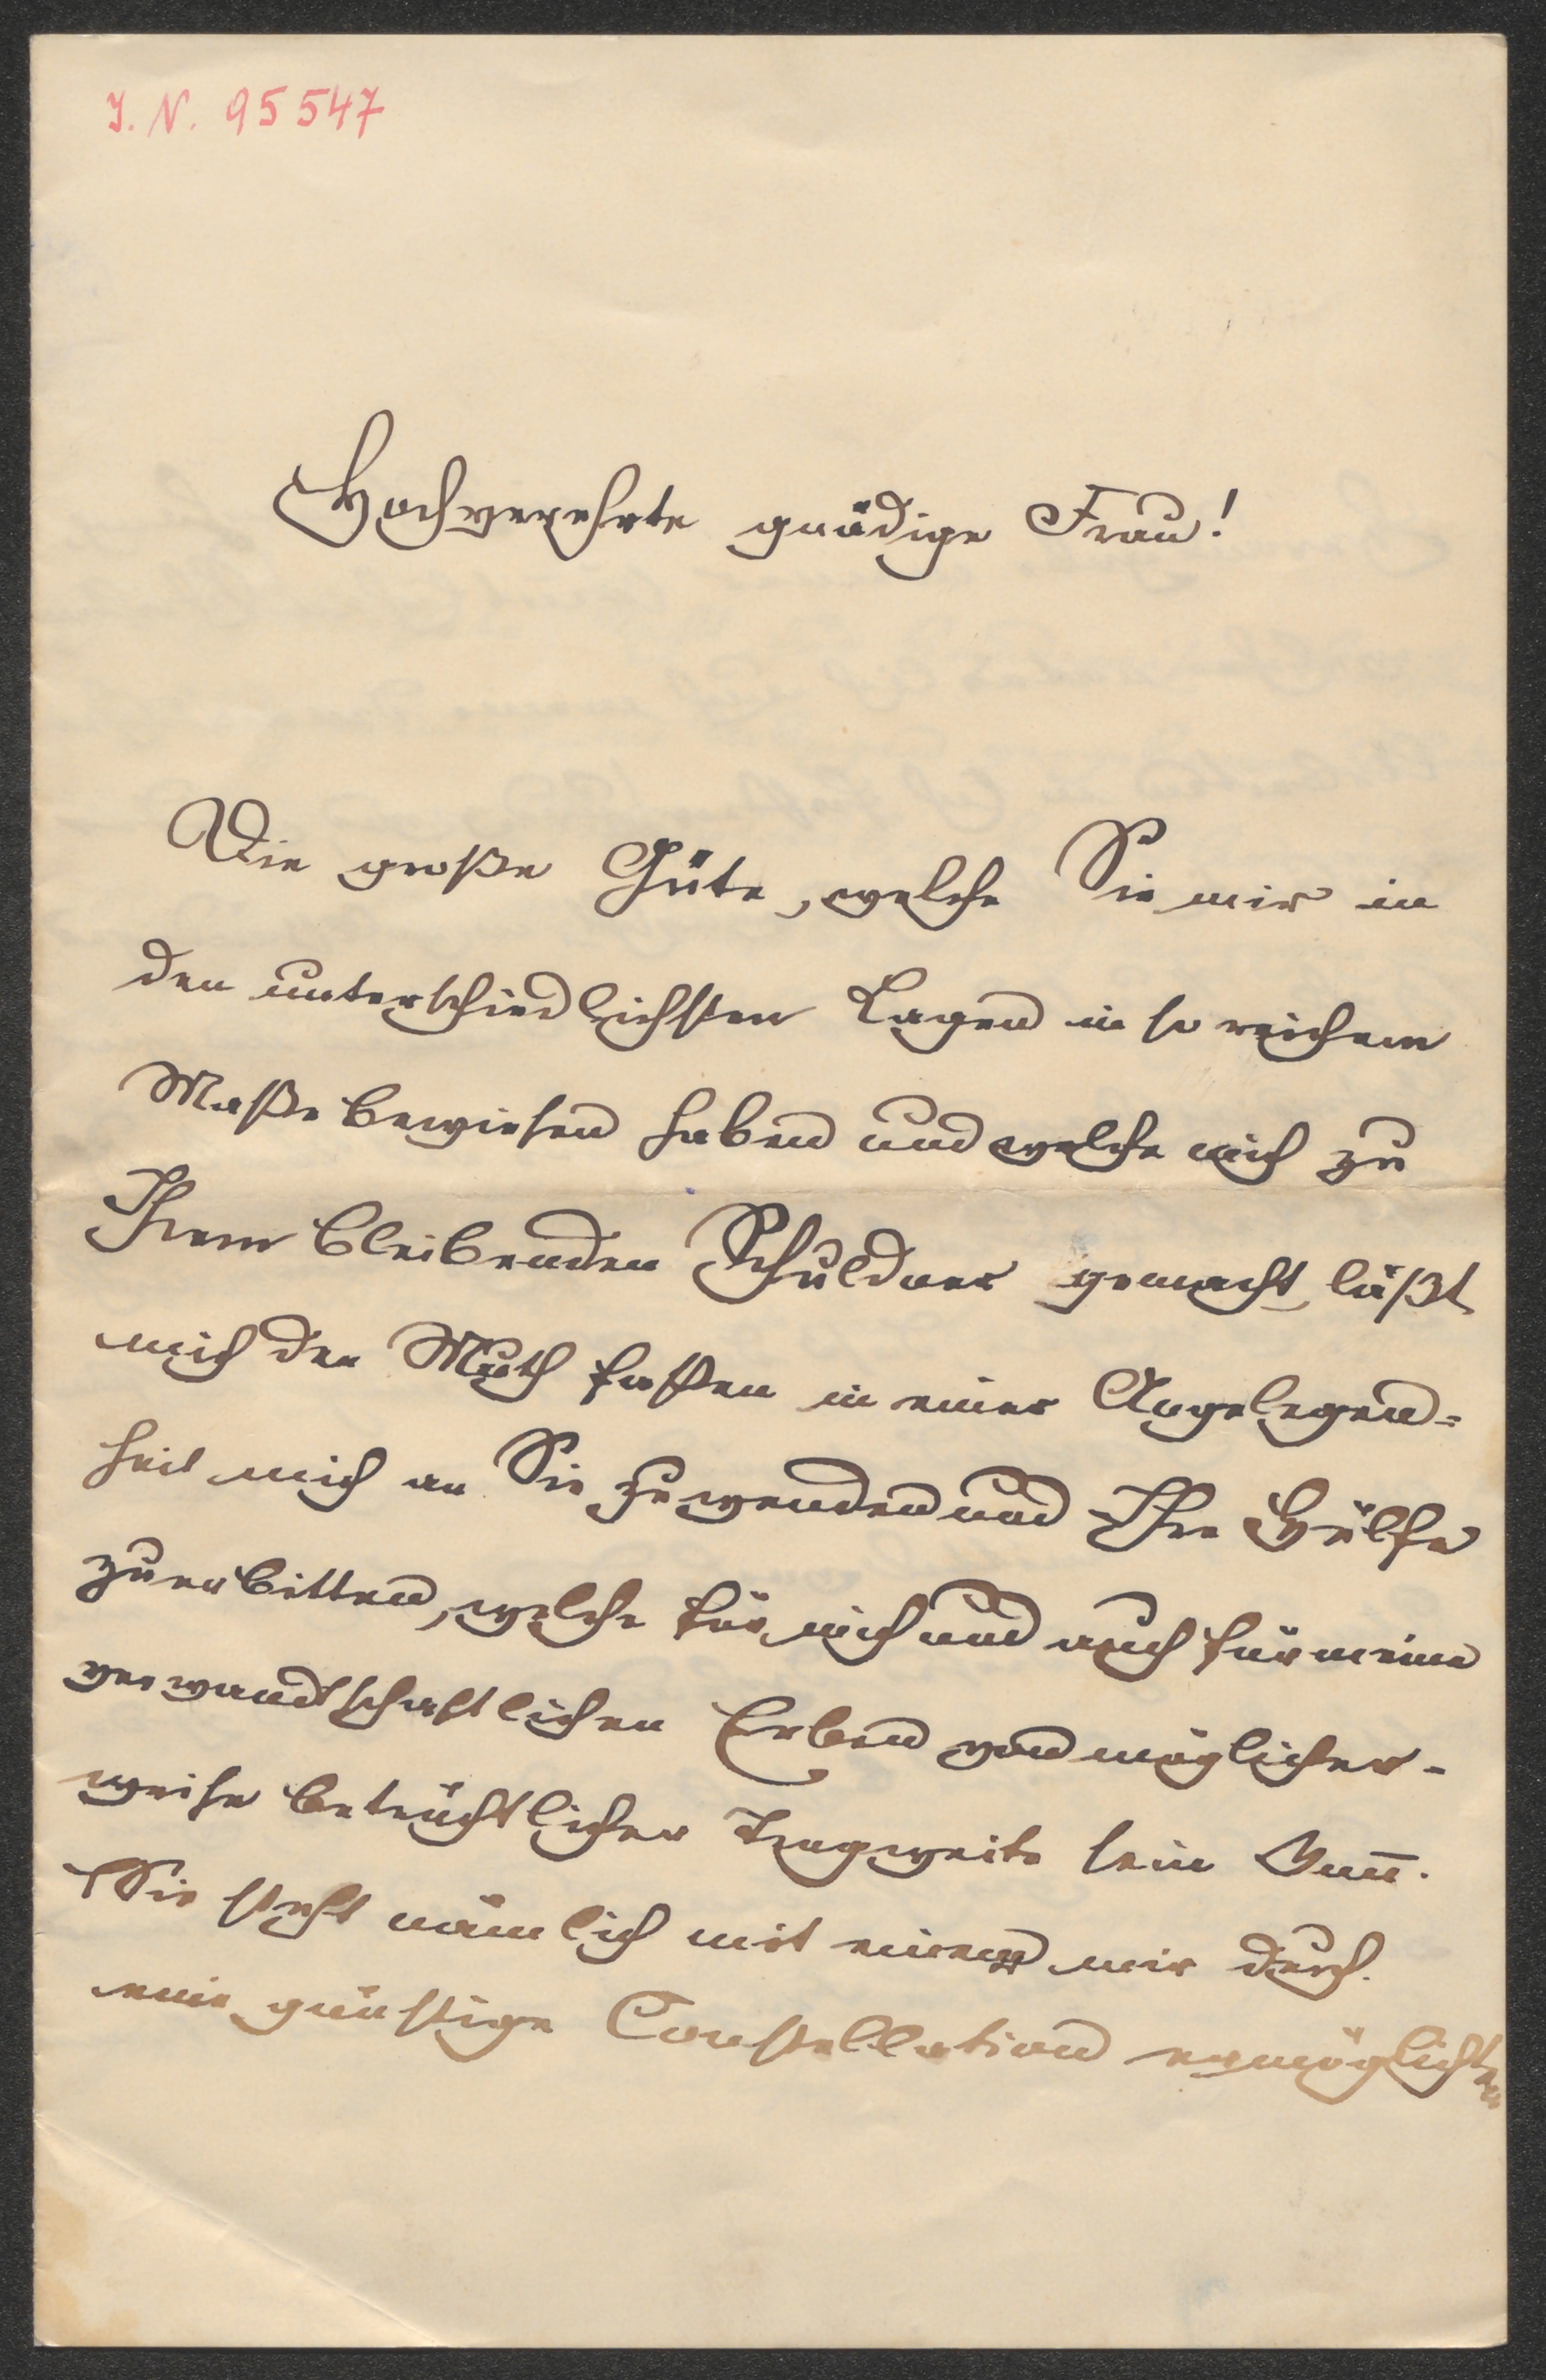 J. N. 95547
Hochverehrte gnädige Frau!
Die große Güte, welche Sie mir in
den unterschiedlichsten Lagen in so reichem
Maße bewiesen haben und welche mich zu
Ihrem bleibenden Schuldner gemacht, läßt
mich den Muth fassen in einer Angelegen=
heit mich an Sie zu wenden und Ihre Hülfe
zu erbitten, welche für mich und auch für meine
verwandtschaftlichen Erben von möglicher-
weise beträchtlicher Tragweite sein kann.
Sie steht nämlich mit einem mir durch
eine günstige Constellation ermöglichten